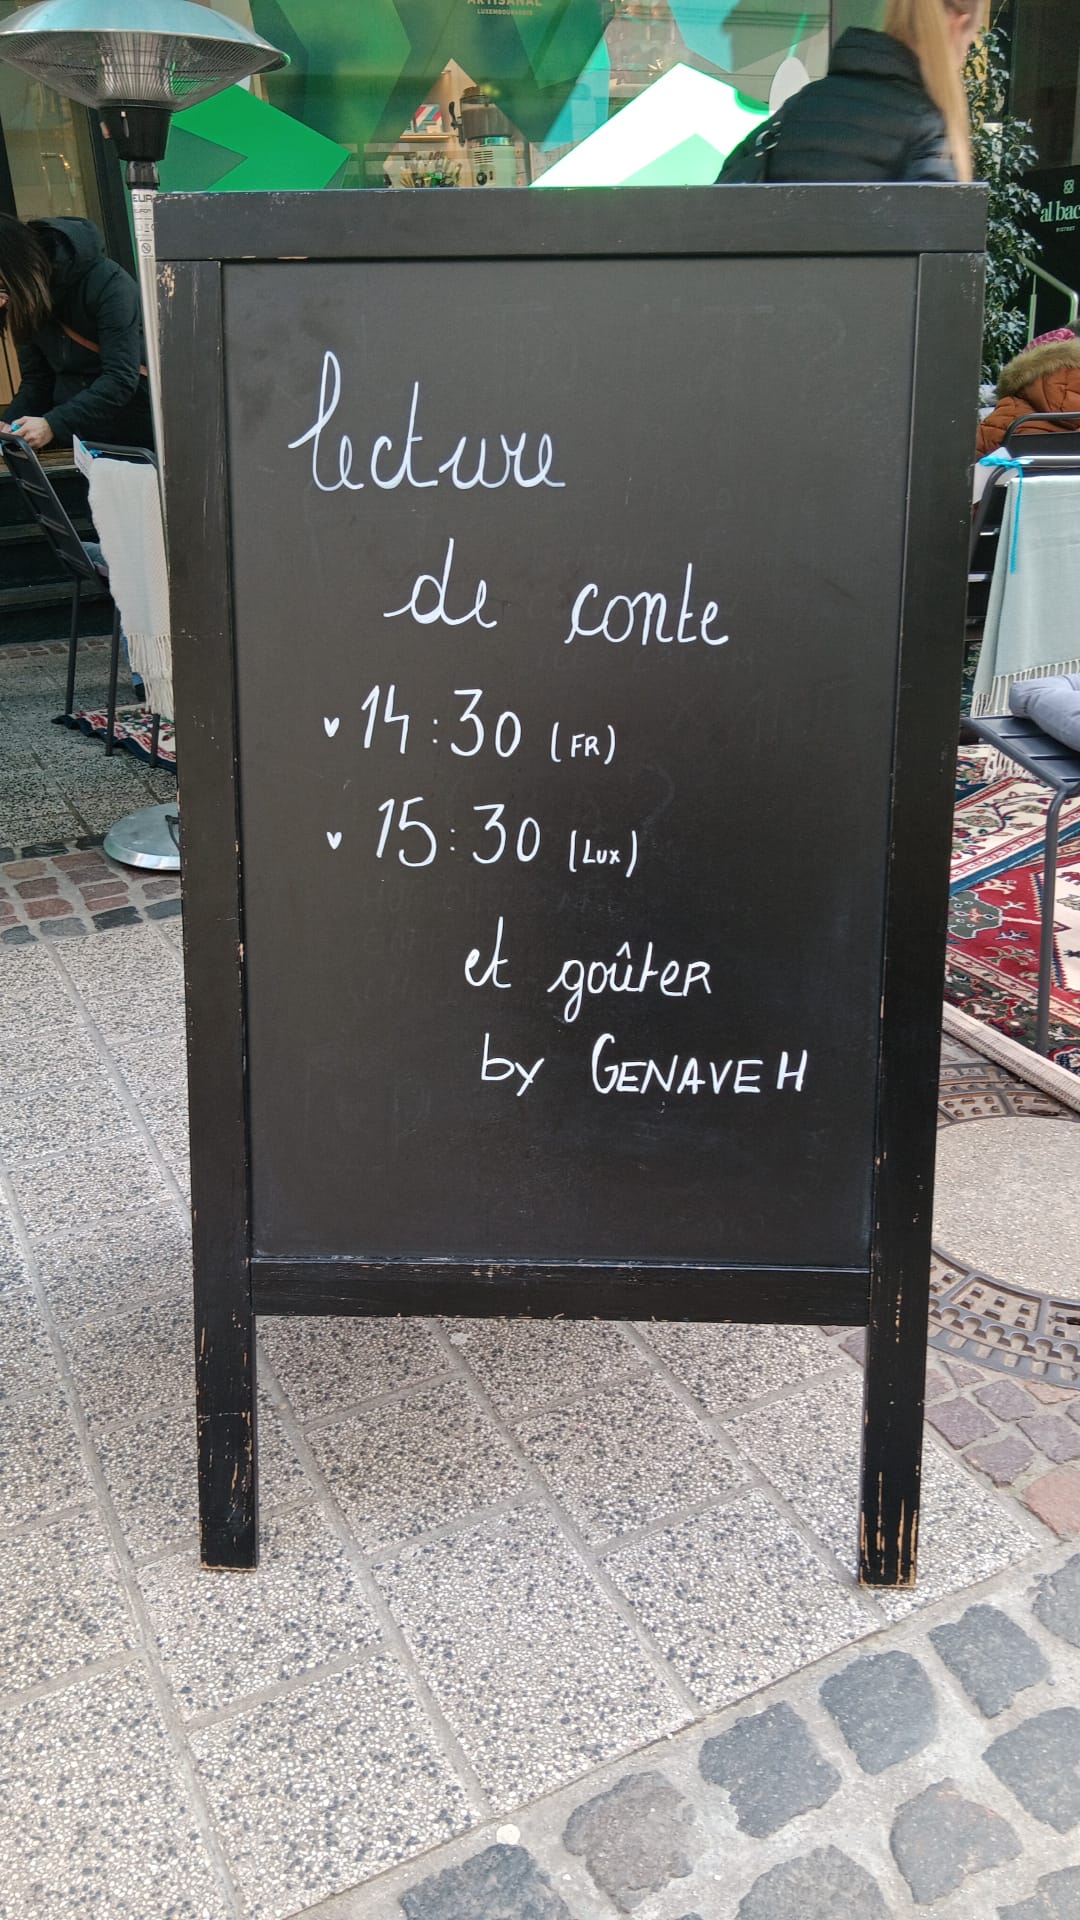 ARTISANAL
LUXEMBOURGEOIS
EUR
al bac
BISTROT
lecture
de conte
♥ 14:30 (FR)
♥ 15:30 (Lux)
et goûter
by GENAVEH